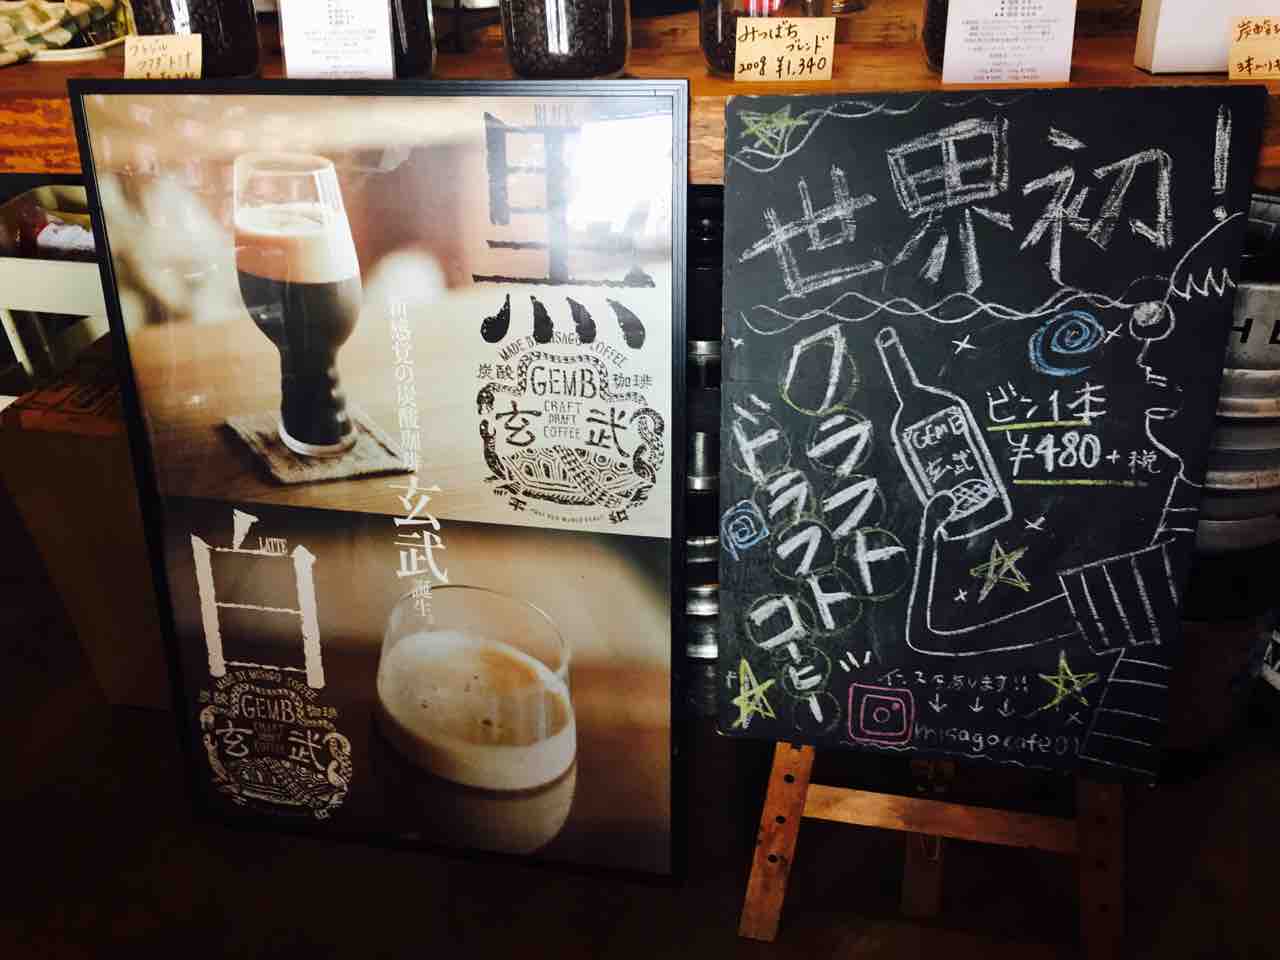 みつばち
ブレンド
200g ¥1,340
BLACK
黒
MADE BY MISAGO COFFEE
炭酸 珈琲
GEMB
CRAFT
DRAFT
COFFEE
玄武
新感覚の炭酸珈琲 玄武 誕生。
白
LATTE
MADE BY MISAGO COFFEE
珈琲
GEMB
CRAFT
DRAFT
COFFEE
玄武
世界初!
クラフト
ドラフト
コーヒー
GEMB
玄武
ビン1本
¥480+税
インスタあります!!
misagocafe01